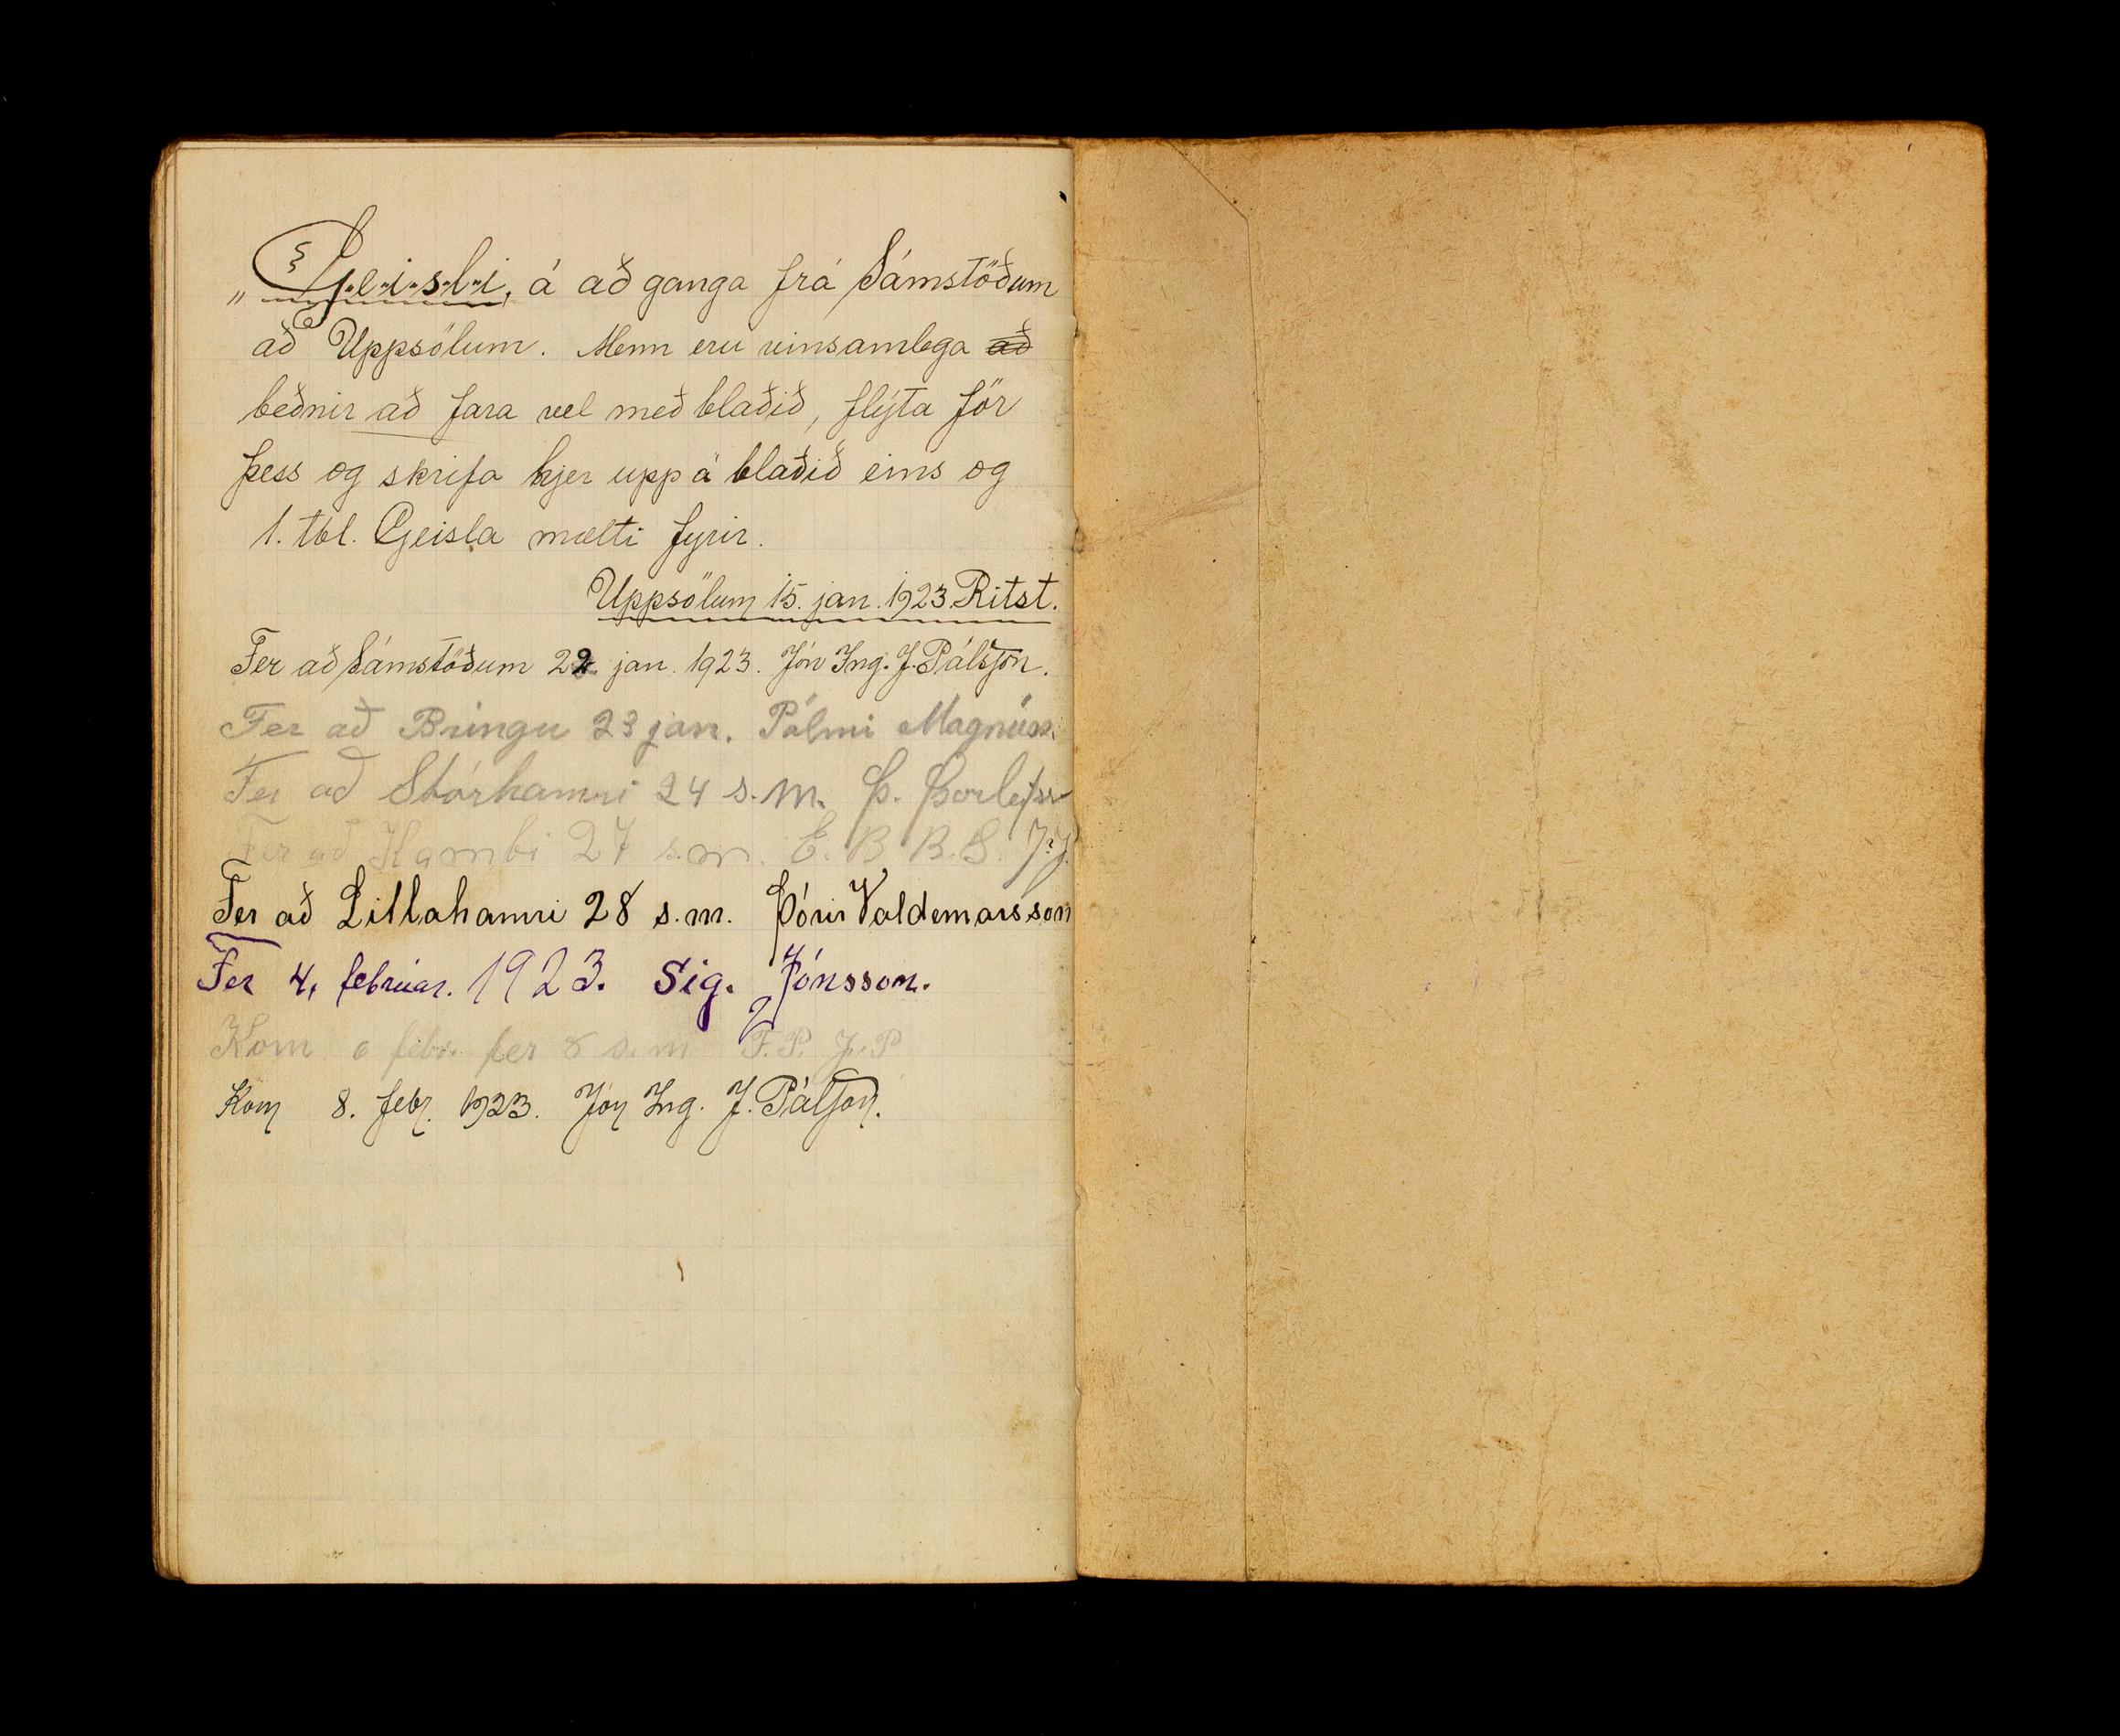 „Geisli, á að ganga frá Sámstöðum
að Uppsölum. Menn eru vinsamlega að
beðnir að fara vel með blaðið, flýta för
þess og skrifa hjer upp á blaðið eins og
1. tbl. Geisla mælti fyrir.
Uppsölum 15. jan. 1923. Ritst.
Fer að Sámstöðum 22. jan. 1923. Jón Ing. J. Pálsson.
Fer að Bringu 23 jan. Pálmi Magnúss.
Fer að Stórhamri 24 s.m. Þ. Þorleifss
Fer að Kambi 27 s.m. E. B B. S. J.J.
Fer að Litlahamri 28 s.m. Þórir Valdemarsson
Fer 4, febrúar. 1923. Sig. Jónsson.
Kom 6 febr. fer 8 s.m F.P. J.P
Kom 8. febr. 1923. Jón Ing. J. Pálsson.